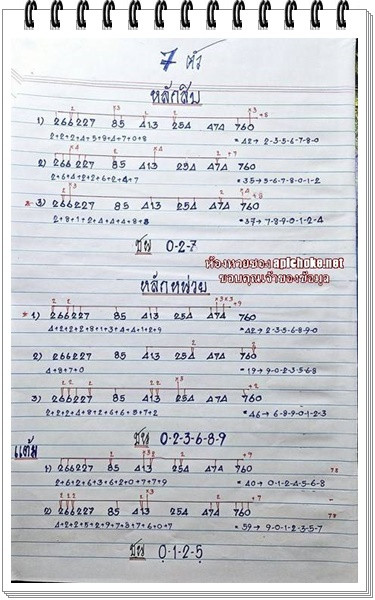 7 ตัว
หลักสิบ
1) 266227 85 413 254 474 760
2+2+2+4+5+9+4+7+0+8 = 42 → 2-3-5-6-7-8-0
2) 266227 85 413 254 474 760
2+6+4+2+2+6+2+4+7 = 35 → 5-6-7-8-0-1-2
3) 266227 85 413 254 474 760
2+8+1+2+4+4+4+8+8 = 37 → 7-8-9-0-1-2-4
ชน 0-2-7
ห้องหวยซอง apichoke.net
ขอบคุณเจ้าของข้อมูล
หลักหน่วย
1) 266227 85 413 254 474 760
4+2+2+2+8+1+3+4+4+1+2+9 = 42 → 2-3-5-6-8-9-0
2) 266227 85 413 254 474 760
4+8+7+0 = 19 → 9-0-2-3-5-6-8
3) 266227 85 413 254 474 760
2+2+2+4+8+2+6+6+5+7+2 = 46 → 6-8-9-0-1-2-3
ชน 0-2-3-6-8-9
แต้ม
1) 266227 85 413 254 474 760
2+6+2+6+3+6+2+0+7+7+9 = 40 → 0-1-2-4-5-6-8
2) 266227 85 413 254 474 760
4+2+2+5+2+9+7+3+7+6+0+7 = 59 → 9-0-1-2-3-5-7
ชน 0-1-2-5